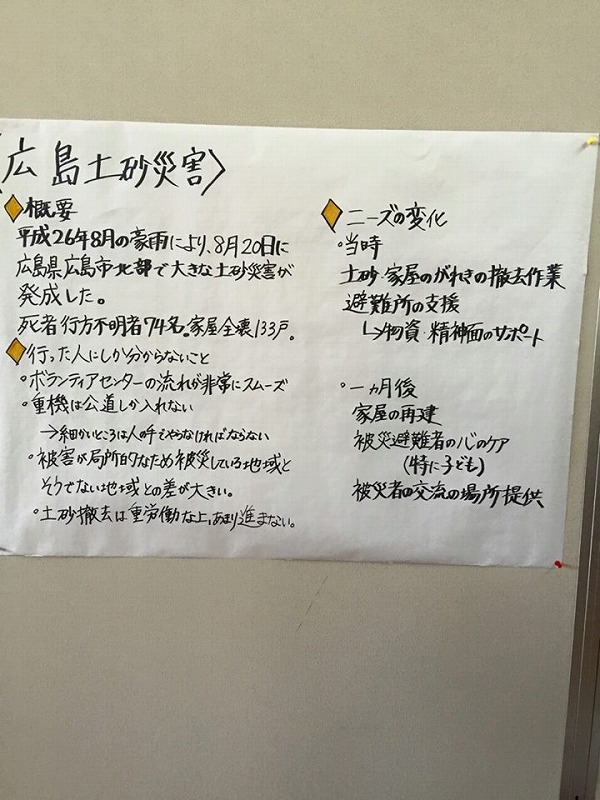 〈広島土砂災害〉
概要
平成26年8月の豪雨により、8月20日に
広島県広島市北部で大きな土砂災害が
発成した。
死者行方不明者74名。家屋全壊133戸。
行った人にしか分からないこと
・ボランティアセンターの流れが非常にスムーズ
・重機は公道しか入れない
→細かいところは人の手でやらなければならない
・被害が局所的なため被災している地域と
そうでない地域との差が大きい。
・土砂撤去は重労働な上、あまり進まない。
ニーズの変化
・当時
土砂・家屋のがれきの撤去作業
避難所の支援
↳物資・精神面のサポート
・一ヵ月後
家屋の再建
被災避難者の心のケア
(特に子ども)
被災者の交流の場所提供